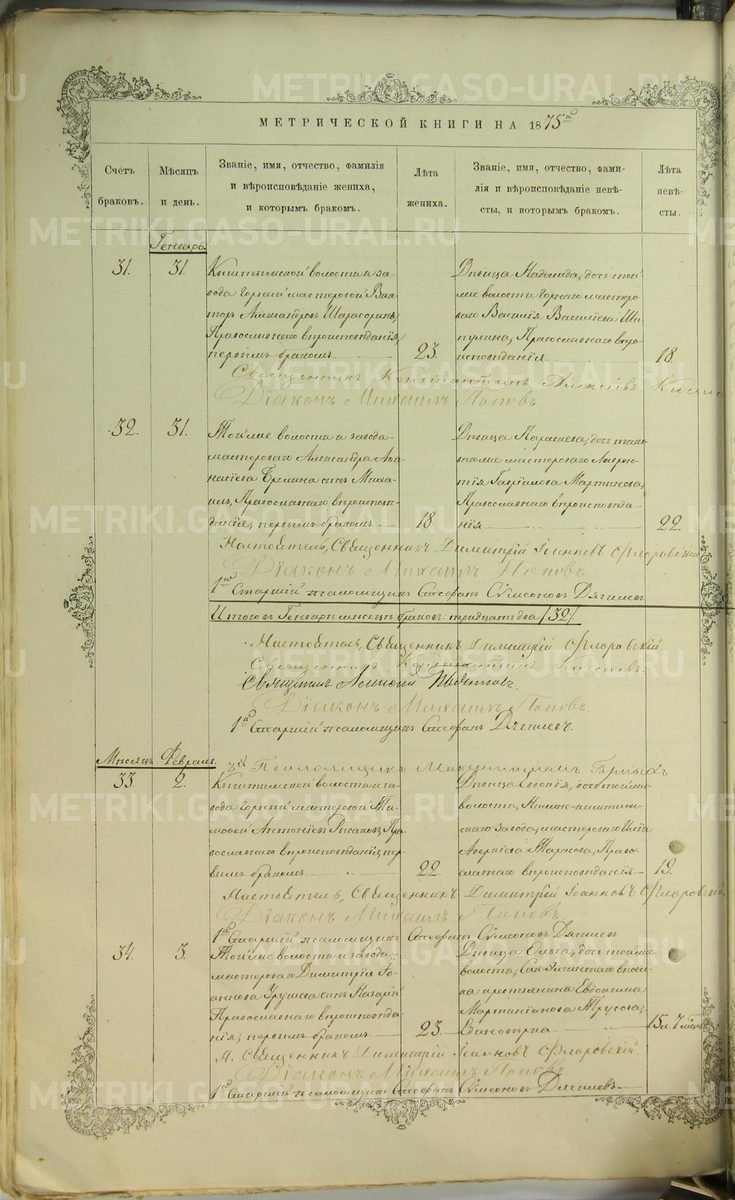 METRIKI.GASO-URAL.RU
МЕТРИЧЕСКОЙ КНИГИ НА 1875й
Счетъ браковъ.
Мѣсяцъ и день.
Званіе, имя, отчество, фамилія
и вѣроисповѣданіе жениха,
и которымъ бракомъ.
Лѣта
жениха.
Званіе, имя, отчество, фами-
лія и вѣроисповѣданіе невѣ-
сты, и которымъ бракомъ.
Лѣта
невѣ-
сты.
Генварь
31.
31.
Кыштымской волости и за-
вода горный мастеровой Вик-
торъ Александровъ
Православнаго вѣроисповѣданія,
первымъ бракомъ
23
Дѣвица Надежда, дочь той
же волости горнаго мастеро-
ваго Василія Василіева Ши-
пулина, Православнаго вѣро-
исповѣданія
18
Священникъ Константинъ Алексѣевъ
Діаконъ Михаилъ Поповъ
32.
31.
Той же волости и завода
мастероваго Александра Аѳа-
насіева сынъ Миха-
илъ, Православнаго вѣроиспов-
ѣданія, первымъ бракомъ
18
Дѣвица дочь тако-
ваго же мастероваго Лаврен-
тія Гавріилова Мартинова,
Православнаго вѣроисповѣда-
нія
22.
Настоятель, Священникъ Димитрій Іоанновъ Флоровскій
Діаконъ Михаилъ Поповъ
1й Старшій псаломщикъ Стефанъ Сѵмеоновъ Дягилевъ
Итого въ Генварѣ мѣсяцѣ браковъ тридцать два /32/
Настоятель, Священникъ Димитрій Флоровскій
Священникъ
Священникъ Алексій
Діаконъ Михаилъ Поповъ.
1й Старшій псаломщикъ Стефанъ Дягилевъ.
Мѣсяцъ Февраль
33.
2.
Кыштымской волости и за-
вода горный мастеровой Ти-
моѳей Антоніевъ Пра-
вославнаго вѣроисповѣданія, пер-
вымъ бракомъ
22
Дѣвица дочь той же
волости, Нижне-кыштым-
скаго завода, мастероваго Иліи
Аверкіева Тарасова, Право-
славнаго вѣроисповѣданія
19.
Настоятель, Священникъ Димитрій Іоанновъ Флоровскій
Діаконъ Михаилъ Поповъ
1й Старшій псаломщикъ Стефанъ Сѵмеоновъ Дягилевъ
34.
3.
Той же волости и завода,
мастероваго Димитрія Іо-
аннова сынъ Назарій
Православнаго вѣроисповѣда-
нія, первымъ бракомъ
23.
Дѣвица Ольга, дочь той же
волости, высел-
ка крестьянина Евдокима
Мартиніанова Трусова,
Единовѣрца
15 л. 7 мѣс.
Н. Священникъ Димитрій Іоанновъ Флоровскій
Діаконъ Михаилъ Поповъ
1й Старшій псаломщикъ Стефанъ Сѵмеоновъ Дягилевъ